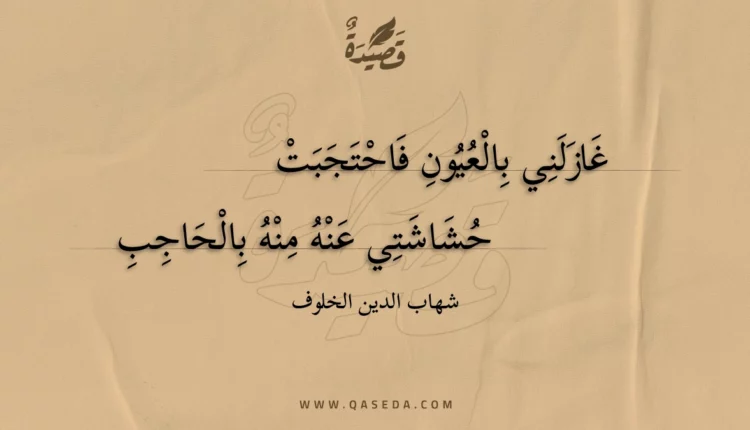 قَصِيْدَةٌ
غَازَلَنِي بِالْعُيُونِ فَاحْتَجَبَتْ
حُشَاشَتِي عَنْهُ مِنْهُ بِالْحَاجِبِ
شهاب الدين الخلوف
WWW.QASEDA.COM